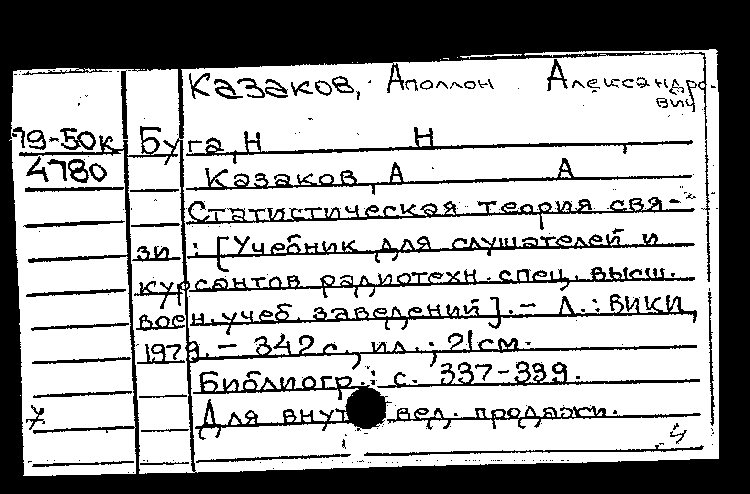 Казаков, Аполлон Александро-
вич
79-50к Буга, Н Н
4780 Казаков, А А
Статистическая теория свя-
зи : [Учебник для слушателей и
курсантов радиотехн. спец. высш.
воен. учеб. заведений]. - Л. : ВИКИ,
1979. - 342 с., ил. ; 21 см.
Библиогр.: с. 337-339.
Для внут вед. продажи.